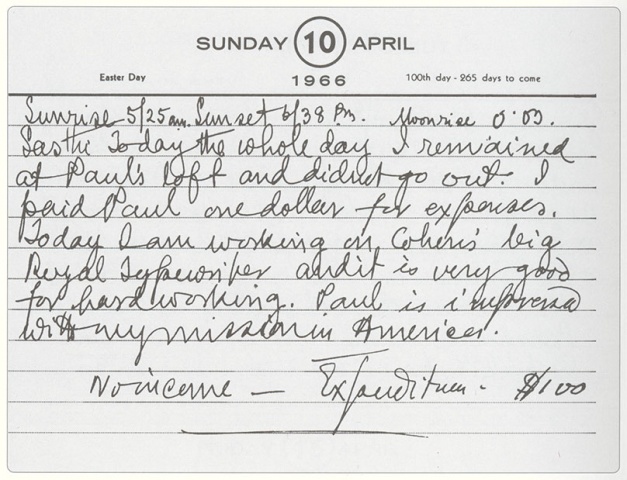 SUNDAY 10 APRIL
Easter Day 1966 100th day - 265 days to come
Sunrise 5/25 am. Sunset 6/38 Pm. Moonrise 0.03.
Sasthi Today the whole day I remained
at Paul's loft and didn't go out. I
paid Paul one dollar for expenses.
Today I am working on Cohen's big
Royal Typewriter and it is very good
for hard working. Paul is impressed
with my mission in America.
No income — Expenditure - $1.00